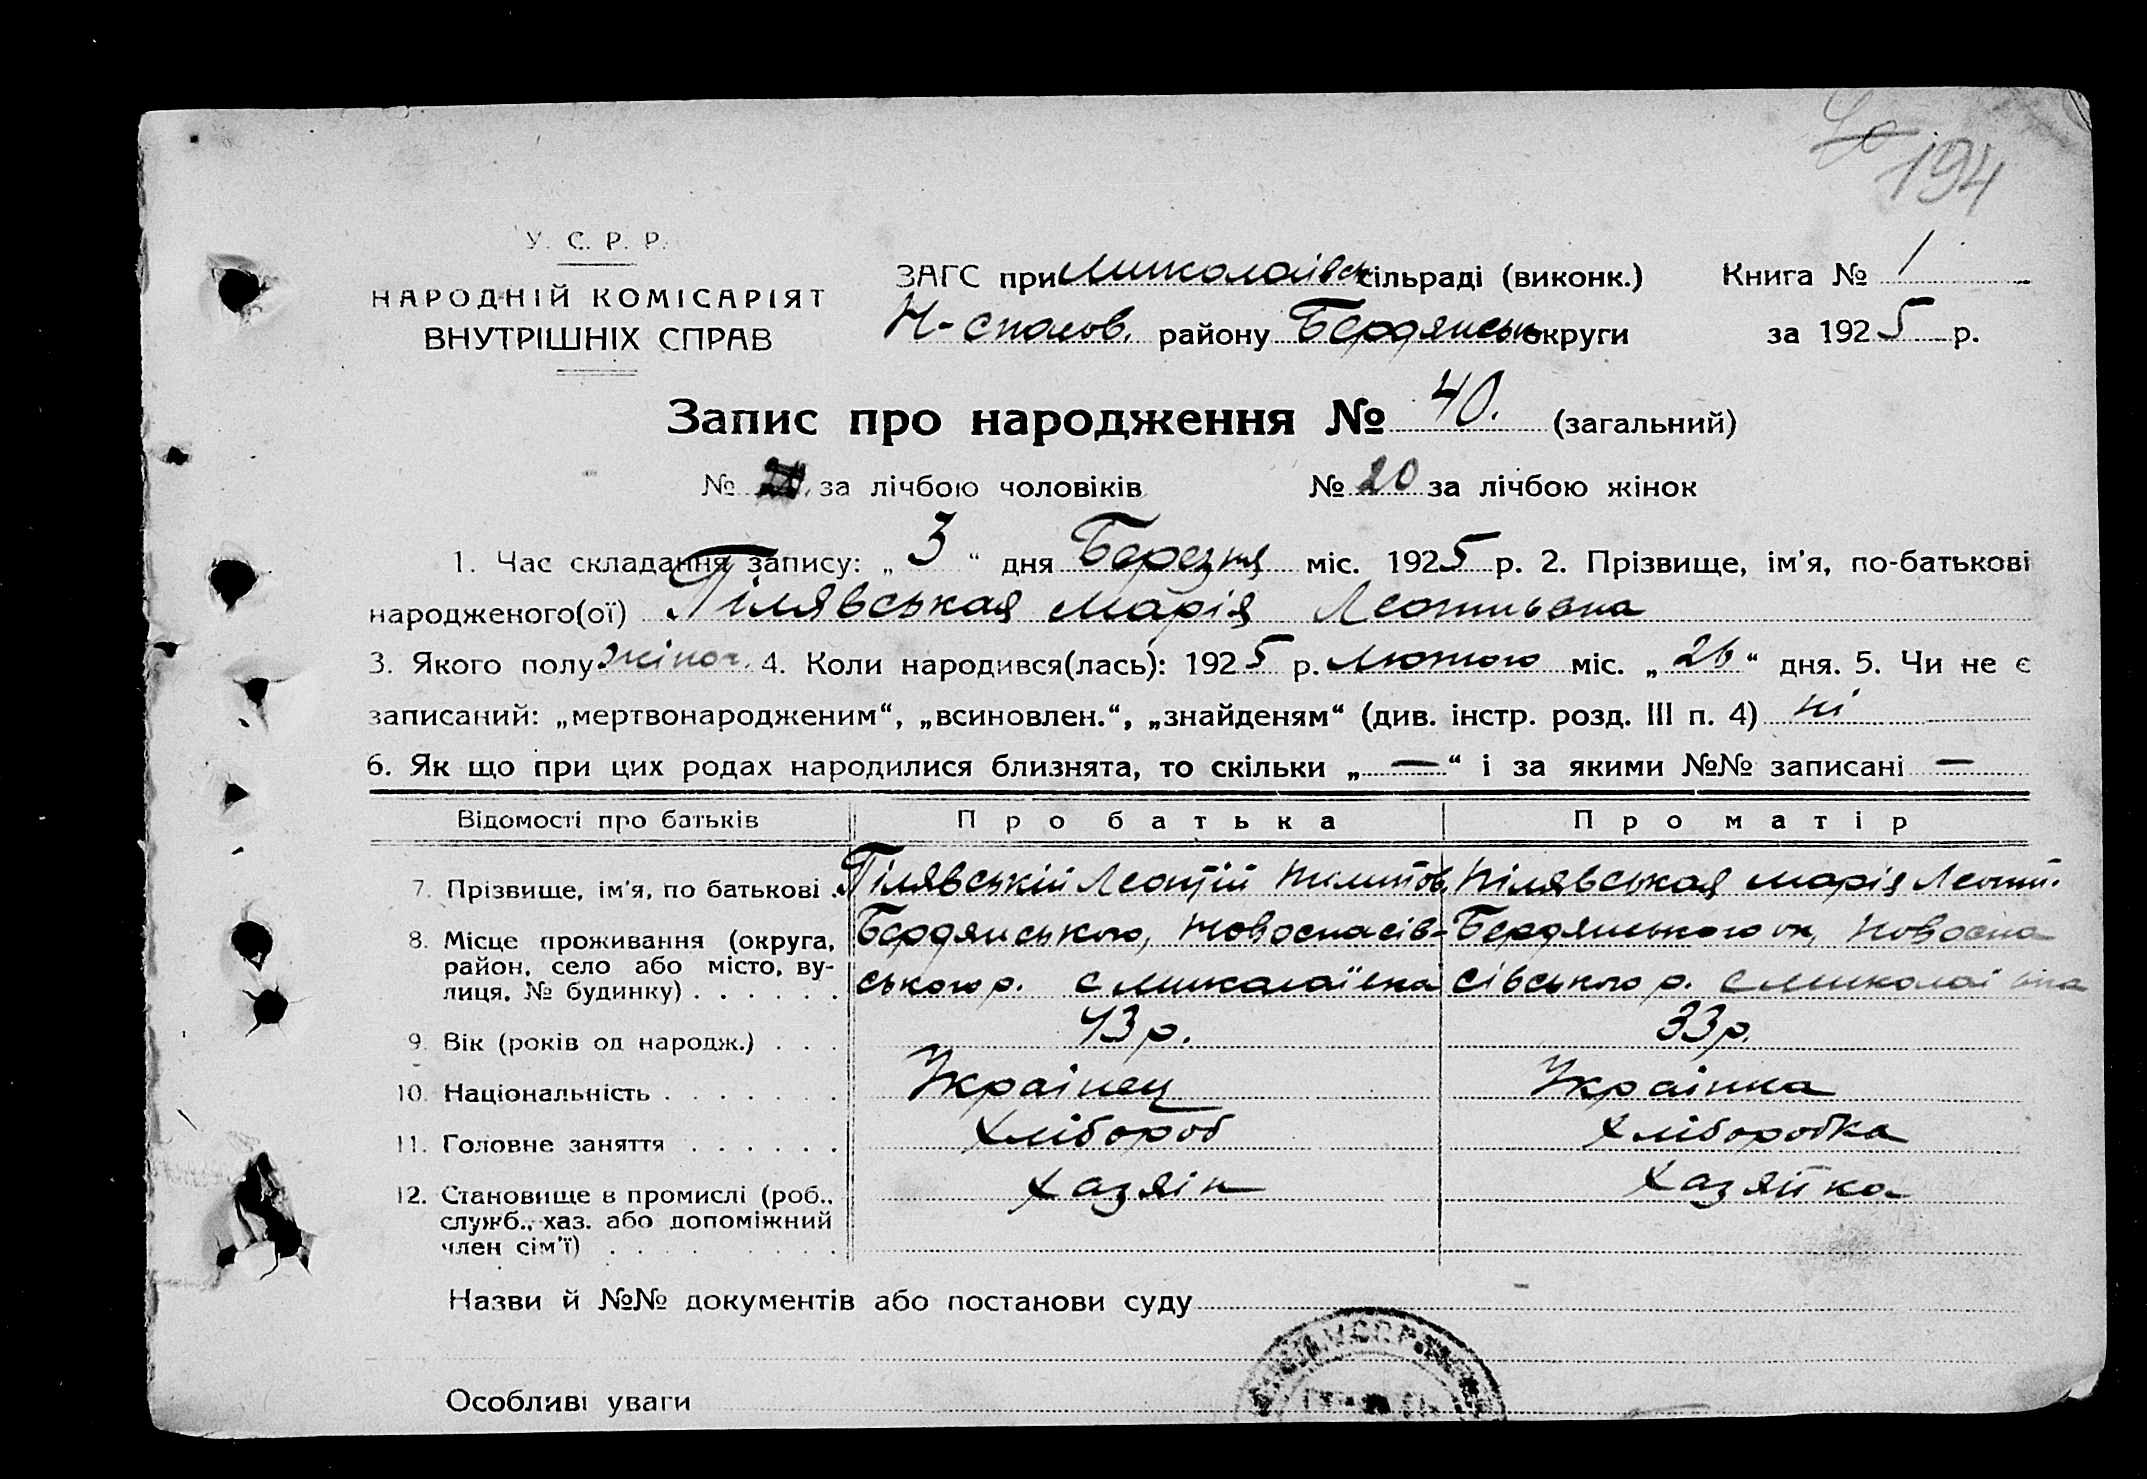 194
У. С. Р. Р.
НАРОДНІЙ КОМІСАРІЯТ
ВНУТРІШНІХ СПРАВ
ЗАГС при Миколаївск сільраді (виконк.) Книга № 1
Н-спасов. району Бердянськ округи за 1925 р.
Запис про народження № 40. (загальний)
№ за лічбою чоловіків № 20 за лічбою жінок
1. Час складання запису: „ 3 “ дня Березня міс. 1925 р. 2. Прізвище, ім’я, по-батькові
народженого(ої) Пілявськая Марія Леонтьовна
3. Якого полу жіноч. 4. Коли народився(лась): 1925 р. Лютого міс. „ 26 “ дня. 5. Чи не є
записаний: „мертвонародженим“, „всиновлен.“, „знайденям“ (див. інстр. розд. III п. 4) ні
6. Як що при цих родах народилися близнята, то скільки „ — “ і за якими №№ записані —
Відомості про батьків Про батька Про матір
7. Прізвище, ім’я, по батькові . Пілявській Леонтій Пілявськая Марія Леонт.
8. Місце проживання (округа, район, село або місто, вулиця, № будинку) . . . . . .
Бердянського, Новоспасів- Бердянського ок, Новоспа
ського р. с Миколаївка сівського р. с Миколаївка
9. Вік (років од народж.) . . . 43 р. 33 р.
10. Національність . . . . . . . Українец Українка
11. Головне заняття . . . . . . Хлібороб Хліборобка
12. Становище в промислі (роб., Хазяін Хазяйка
служб., хаз. або допоміжний
член сім’ї) . . . . . . . . .
Назви й №№ документів або постанови суду
Особливі уваги